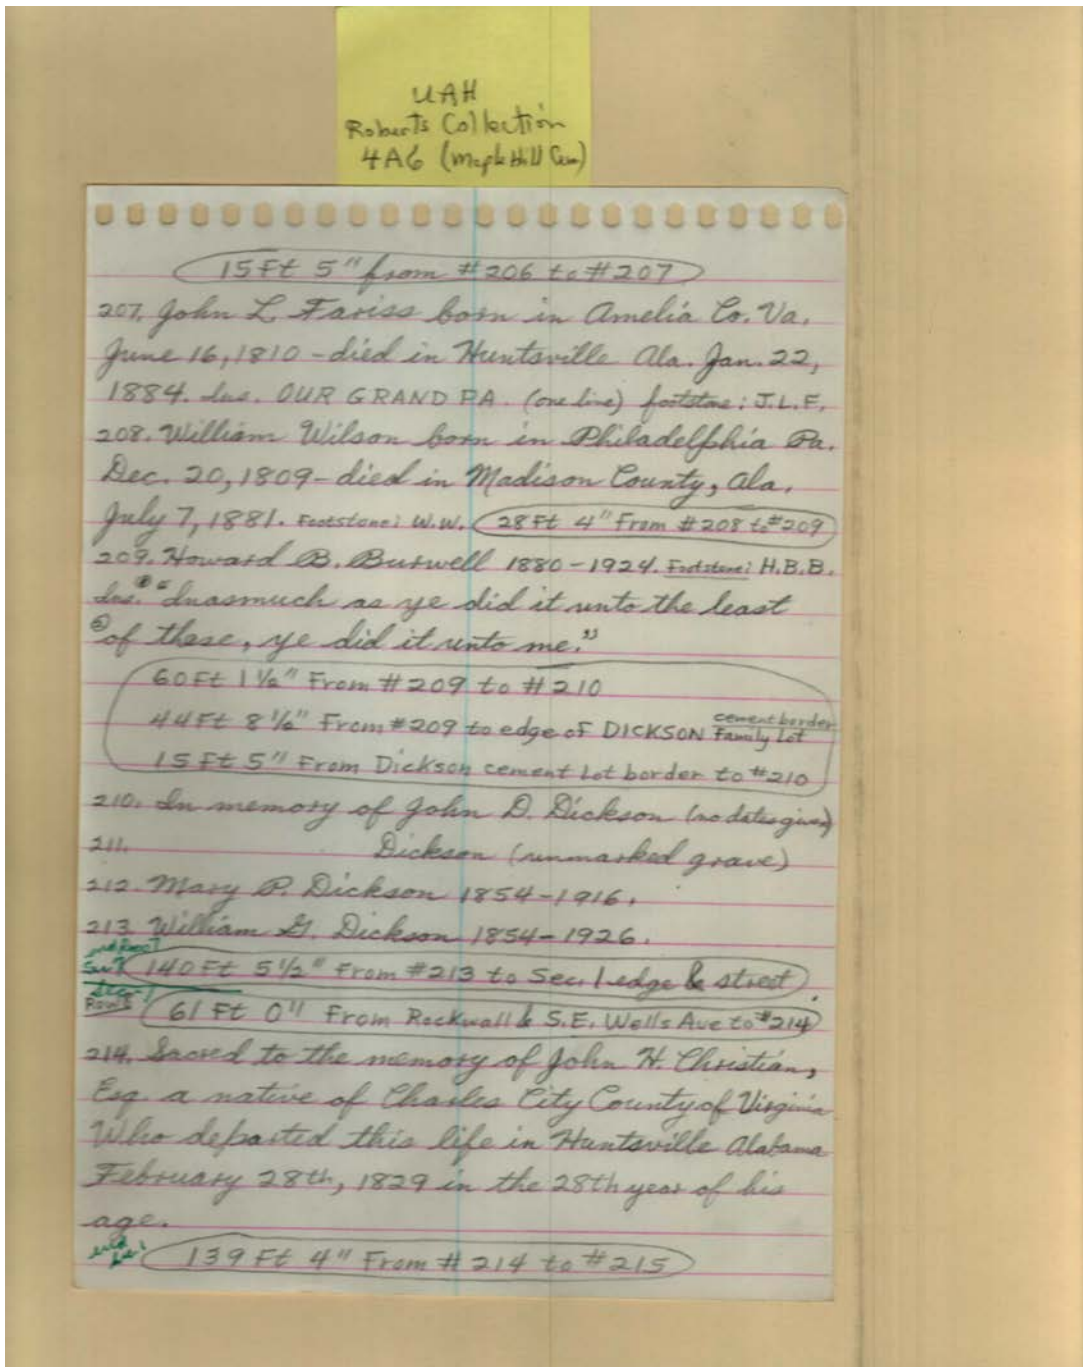 UAH
Roberts Collection
4A6 (Maple Hill Cem)
15 Ft 5" from #206 to #207
207. John L Fariss born in Amelia Co. Va.
June 16, 1810 - died in Huntsville Ala. Jan. 22,
1884. Ins. OUR GRAND PA. (one line) footstone: J.L.F.
208. William Wilson born in Philadelphia Pa.
Dec. 20, 1809 - died in Madison County, Ala.
July 7, 1881. Footstone: W.W. 28 Ft 4" From #208 to #209
209. Howard B. Burwell 1880-1924. Footstone: H.B.B.
Ins. "Inasmuch as ye did it unto the least
② of these, ye did it unto me."
60 Ft 1 1/2" From #209 to #210
44 Ft 8 1/2" From #209 to edge of DICKSON cement border Family Lot
15 Ft 5" From Dickson cement Lot border to #210
210. In memory of John D. Dickson (no dates given)
211. Dickson (unmarked grave)
212. Mary P. Dickson 1854-1916.
213. William G. Dickson 1854-1926.
140 Ft 5 1/2" From #213 to Sec. 1 edge & street
Sec-1
Row 8 61 Ft 0" From Rockwall & S.E. Wells Ave to #214
214. Sacred to the memory of John H. Christian,
Esq. a native of Charles City County of Virginia
Who departed this life in Huntsville Alabama
February 28th, 1829 in the 28th year of his
age.
139 Ft 4" From #214 to #215